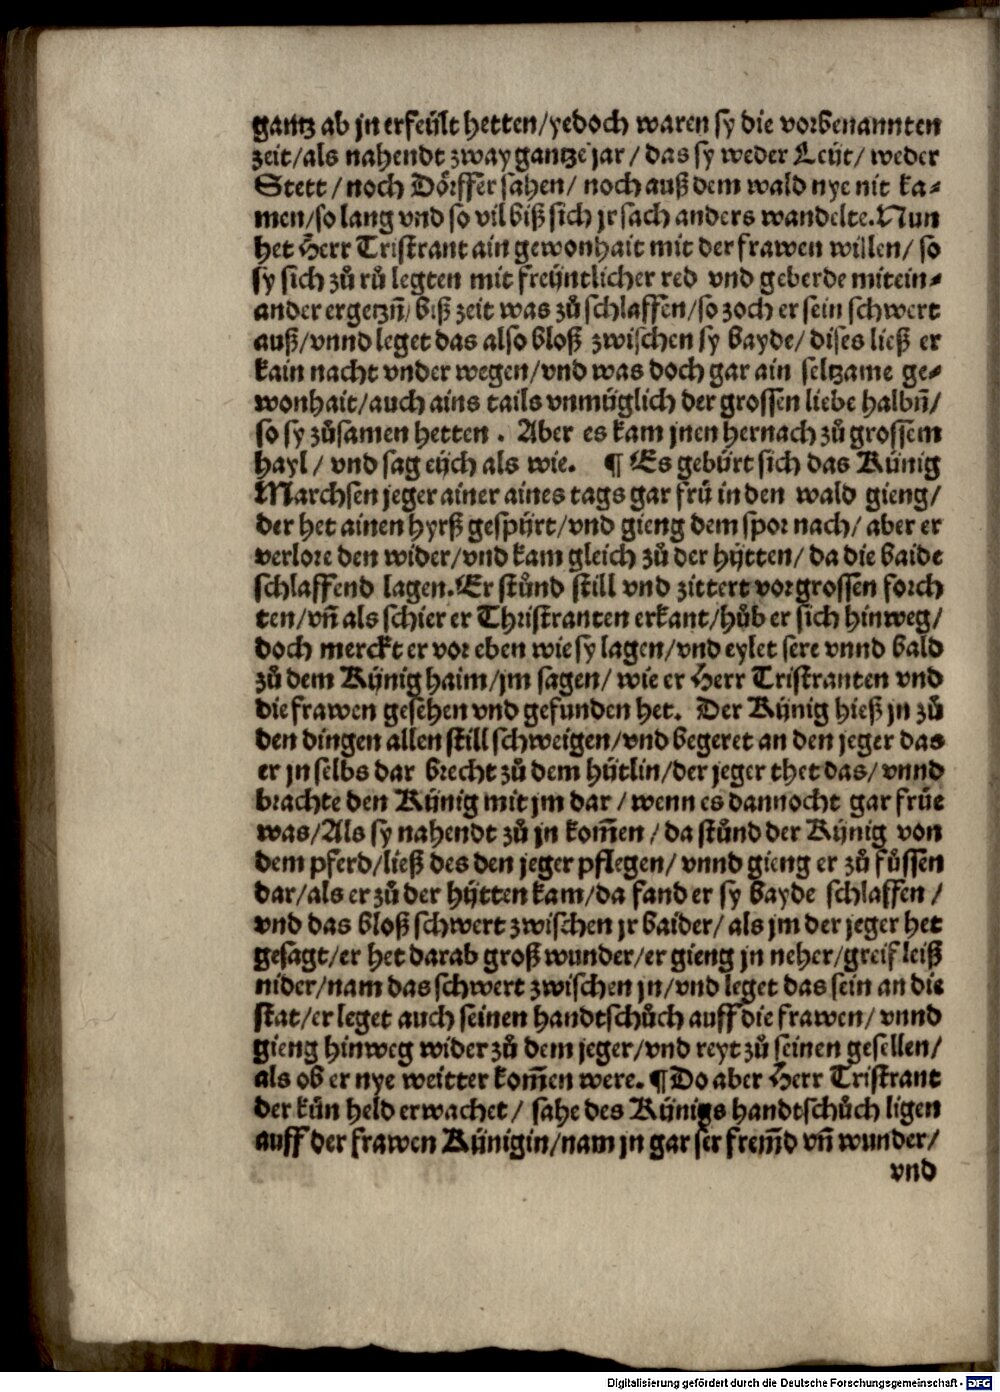 gantz ab jn erfeült hetten/yedoch waren sy die vorbenannten
zeit/als nahendt zway gantze jar / das sy weder Leüt/ weder
Stett / noch Dörffer sahen/ noch auß dem wald nye nit ka⸗
men/so lang vnd so vil biß sich jr sach anders wandelte. Nun
het Herr Tristrant ain gewonhait mit der frawen willen/ so
sy sich zů rů legten mit freüntlicher red vnd geberde mitein⸗
ander ergetzn̄/ biß zeit was zů schlaffen/so zoch er sein schwert
auß/vnnd leget das also bloß zwischen sy bayde/ dises ließ er
kain nacht vnder wegen/vnd was doch gar ain seltzame ge⸗
wonhait/auch ains tails vnmüglich der grossen liebe halbn̄/
so sy zůsamen hetten . Aber es kam jnen hernach zů grossem
hayl / vnd sag eüch als wie. ¶ Es gebürt sich das Künig
Marchsen jeger ainer aines tags gar frü in den wald gieng/
der het ainen hyrß gespürt/vnd gieng dem spor nach/ aber er
verlore den wider/vnd kam gleich zů der hütten/ da die baide
schlaffend lagen. Er stůnd still vnd zittert vor grossen forch
ten/vn̄ als schier er Thristranten erkant/hůb er sich hinweg/
doch merckt er vor eben wie sy lagen/vnd eylet sere vnnd bald
zů dem Künig haim/jm sagen/ wie er Herr Tristranten vnd
die frawen gesehen vnd gefunden het. Der Künig hieß jn zů
den dingen allen still schweigen/vnd begeret an den jeger das
er jn selbs dar brecht zů dem hütlin/der jeger thet das/ vnnd
brachte den Künig mit jm dar / wenn es dannocht gar früe
was/Als sy nahendt zů jn kom̄en / da stůnd der Künig von
dem pferd/ließ des den jeger pflegen/ vnnd gieng er zů füssen
dar/als er zů der hütten kam/da fand er sy bayde schlaffen /
vnd das bloß schwert zwischen jr baider/ als jm der jeger het
gesagt/er het darab groß wunder/er gieng jn neher/greif leiß
nider/nam das schwert zwischen jn/vnd leget das sein an die
stat/er leget auch seinen handtschůch auff die frawen/ vnnd
gieng hinweg wider zů dem jeger/vnd reyt zů seinen gesellen/
als ob er nye weitter kom̄en were. ¶ Do aber Herr Tristrant
der kün held erwachet/ sahe des Künigs handtschůch ligen
auff der frawen Künigin/nam jn gar ser frem̄d vn̄ wunder/
vnd
Digitalisierung gefördert durch die Deutsche Forschungsgemeinschaft - DFG